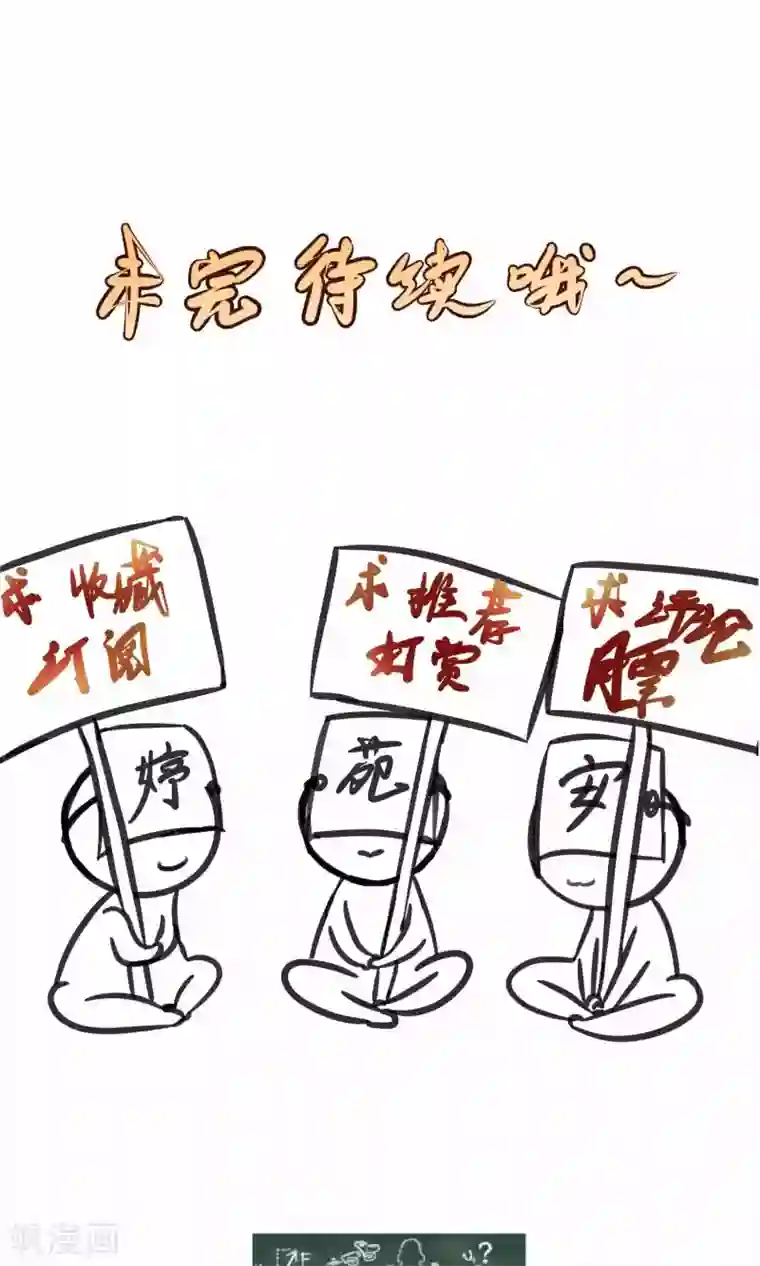 未完待续哦~
求收藏
订阅
求推荐
打赏
求评论
月票
婷
苑
安
飒漫画
u?